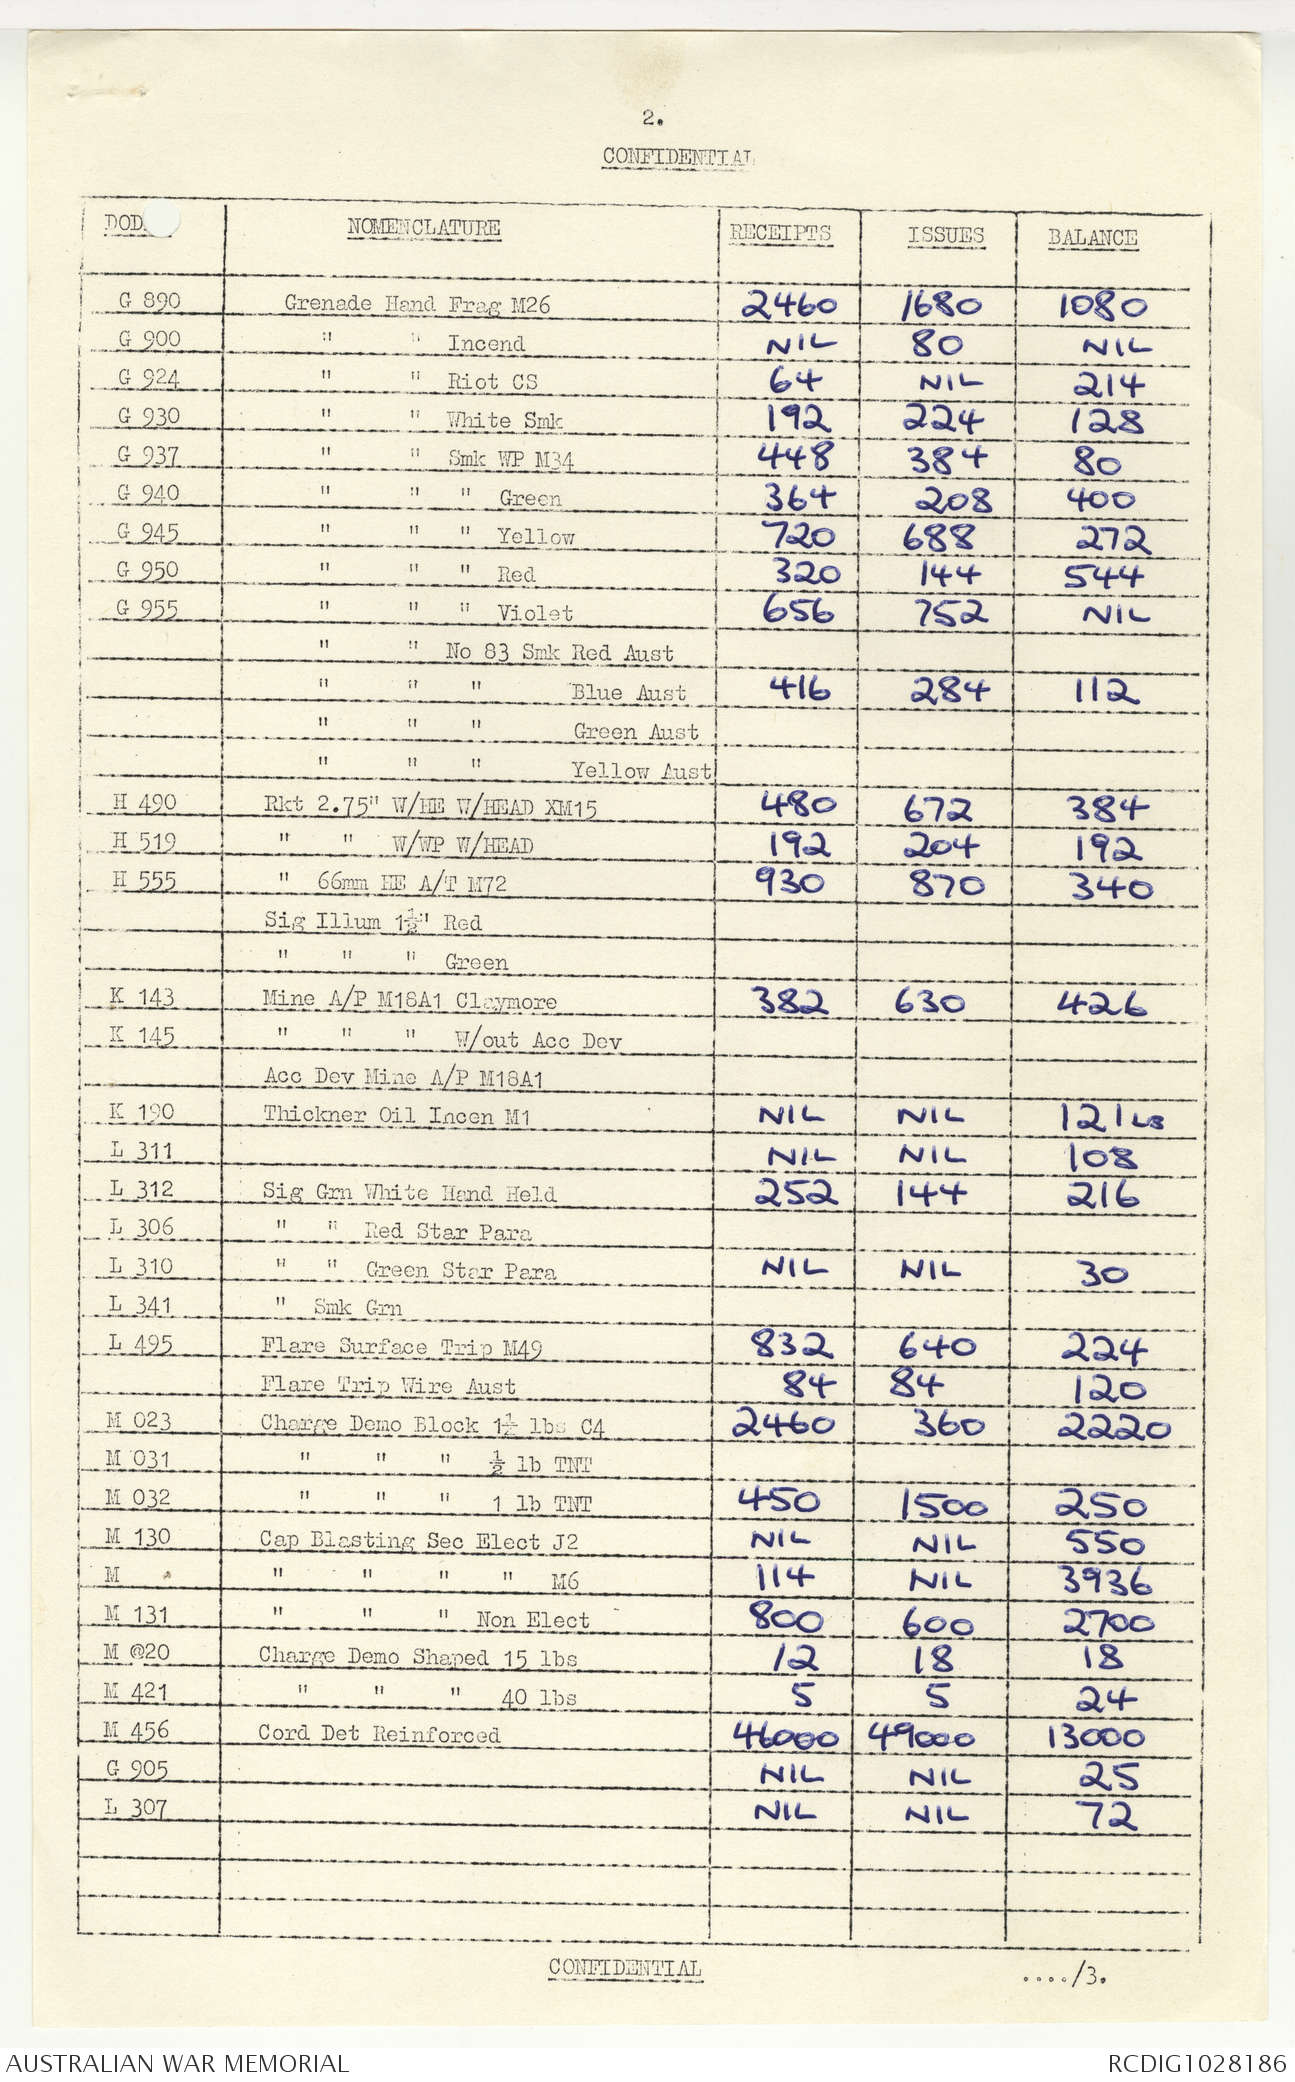 2.
CONFIDENTIAL
DOD NOMENCLATURE RECEIPTS ISSUES BALANCE
G 890 Grenade Hand Frag M26 2460 1680 1080
G 900 " " Incend NIL 80 NIL
G 924 " " Riot CS 64 NIL 214
G 930 " " White Smk 192 224 128
G 937 " " Smk WP M34 448 384 80
G 940 " " " Green 364 208 400
G 945 " " " Yellow 720 688 272
G 950 " " " Red 320 144 544
G 955 " " " Violet 656 752 NIL
" " No 83 Smk Red Aust
" " " Blue Aust 416 284 112
" " " Green Aust
" " " Yellow Aust
H 490 Rkt 2.75" W/HE W/HEAD XM15 480 672 384
H 519 " " W/WP W/HEAD 192 204 192
H 555 " 66mm HE A/T M72 930 870 340
Sig Illum 1½" Red
" " " Green
K 143 Mine A/P M18A1 Claymore 382 630 426
K 145 " " " W/out Acc Dev
Acc Dev Mine A/P M18A1
K 190 Thickner Oil Incen M1 NIL NIL 121 LB
L 311 NIL NIL 108
L 312 Sig Grn White Hand Held 252 144 216
L 306 " " Red Star Para
L 310 " " Green Star Para NIL NIL 30
L 341 " Smk Grn
L 495 Flare Surface Trip M49 832 640 224
Flare Trip Wire Aust 84 84 120
M 023 Charge Demo Block 1¼ lbs C4 2460 360 2220
M 031 " " " ½ lb TNT
M 032 " " " 1 lb TNT 450 1500 250
M 130 Cap Blasting Sec Elect J2 NIL NIL 550
M " " " " M6 114 NIL 3936
M 131 " " " Non Elect 800 600 2700
M @20 Charge Demo Shaped 15 lbs 12 18 18
M 421 " " " 40 lbs 5 5 24
M 456 Cord Det Reinforced 46000 49000 13000
G 905 NIL NIL 25
L 307 NIL NIL 72
CONFIDENTIAL
..../3.
AUSTRALIAN WAR MEMORIAL RCDIG1028186